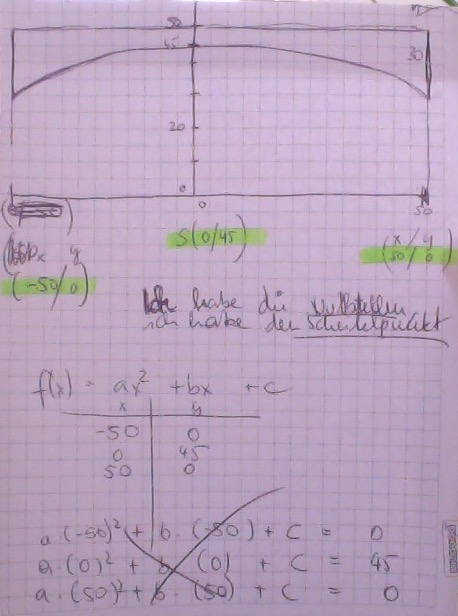 50
45
30
20
0
0
50
x y
S(0/45)
(x/y
50/0)
(-50/0)
Ich habe die Nullstellen
ich habe den Scheitelpunkt
f(x) = ax² + bx + c
x y
-50 0
0 45
50 0
a·(-50)² + b·(-50) + C = 0
a·(0)² + b·(0) + C = 45
a·(50)² + b·(50) + C = 0